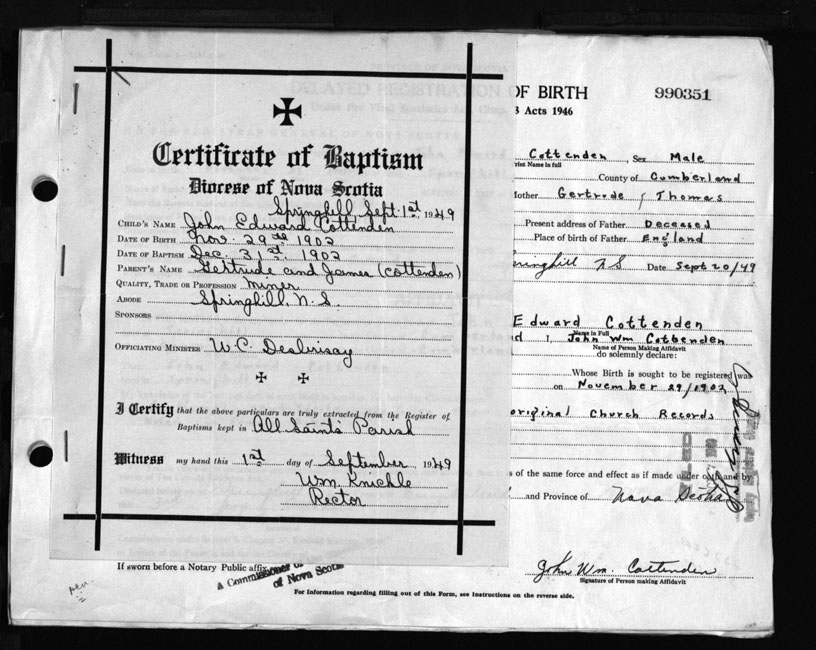 Certificate of Baptism
Diocese of Nova Scotia
Springhill Sept. 1st, 1949
CHILD'S NAME John Edward Cottenden
DATE OF BIRTH Nov. 29th 1902
DATE OF BAPTISM Dec. 31st. 1902
PARENT'S NAME Gertrude and James (Cottenden)
QUALITY, TRADE OR PROFESSION Miner
ABODE Springhill. N. S.
SPONSORS
OFFICIATING MINISTER W. C. Desbrisay
I Certify that the above particulars are truly extracted from the Register of
Baptisms kept in All Saints Parish
Witness my hand this 1st day of September 1949
Wm. Knickle
Rector
If sworn before a Notary Public affix
A Commissioner of
of Nova Scotia
For Information regarding filling out of this Form, see Instructions on the reverse side.
OF BIRTH 990351
3 Acts 1946
Cottenden, Sex Male
rist Name in full
County of Cumberland
Mother Gertrude / Thomas
Present address of Father Deceased
Place of birth of Father England
ringhill N S Date Sept 20/49
Edward Cottenden
Name in Full
d I, John Wm Cottenden
Name of Person Making Affidavit
do solemnly declare:
Whose Birth is sought to be registered was
on November 29/1902
original Church Records
s of the same force and effect as if made under oath and by
and Province of Nova Scotia
John Wm. Cottenden
Signature of Person making Affidavit